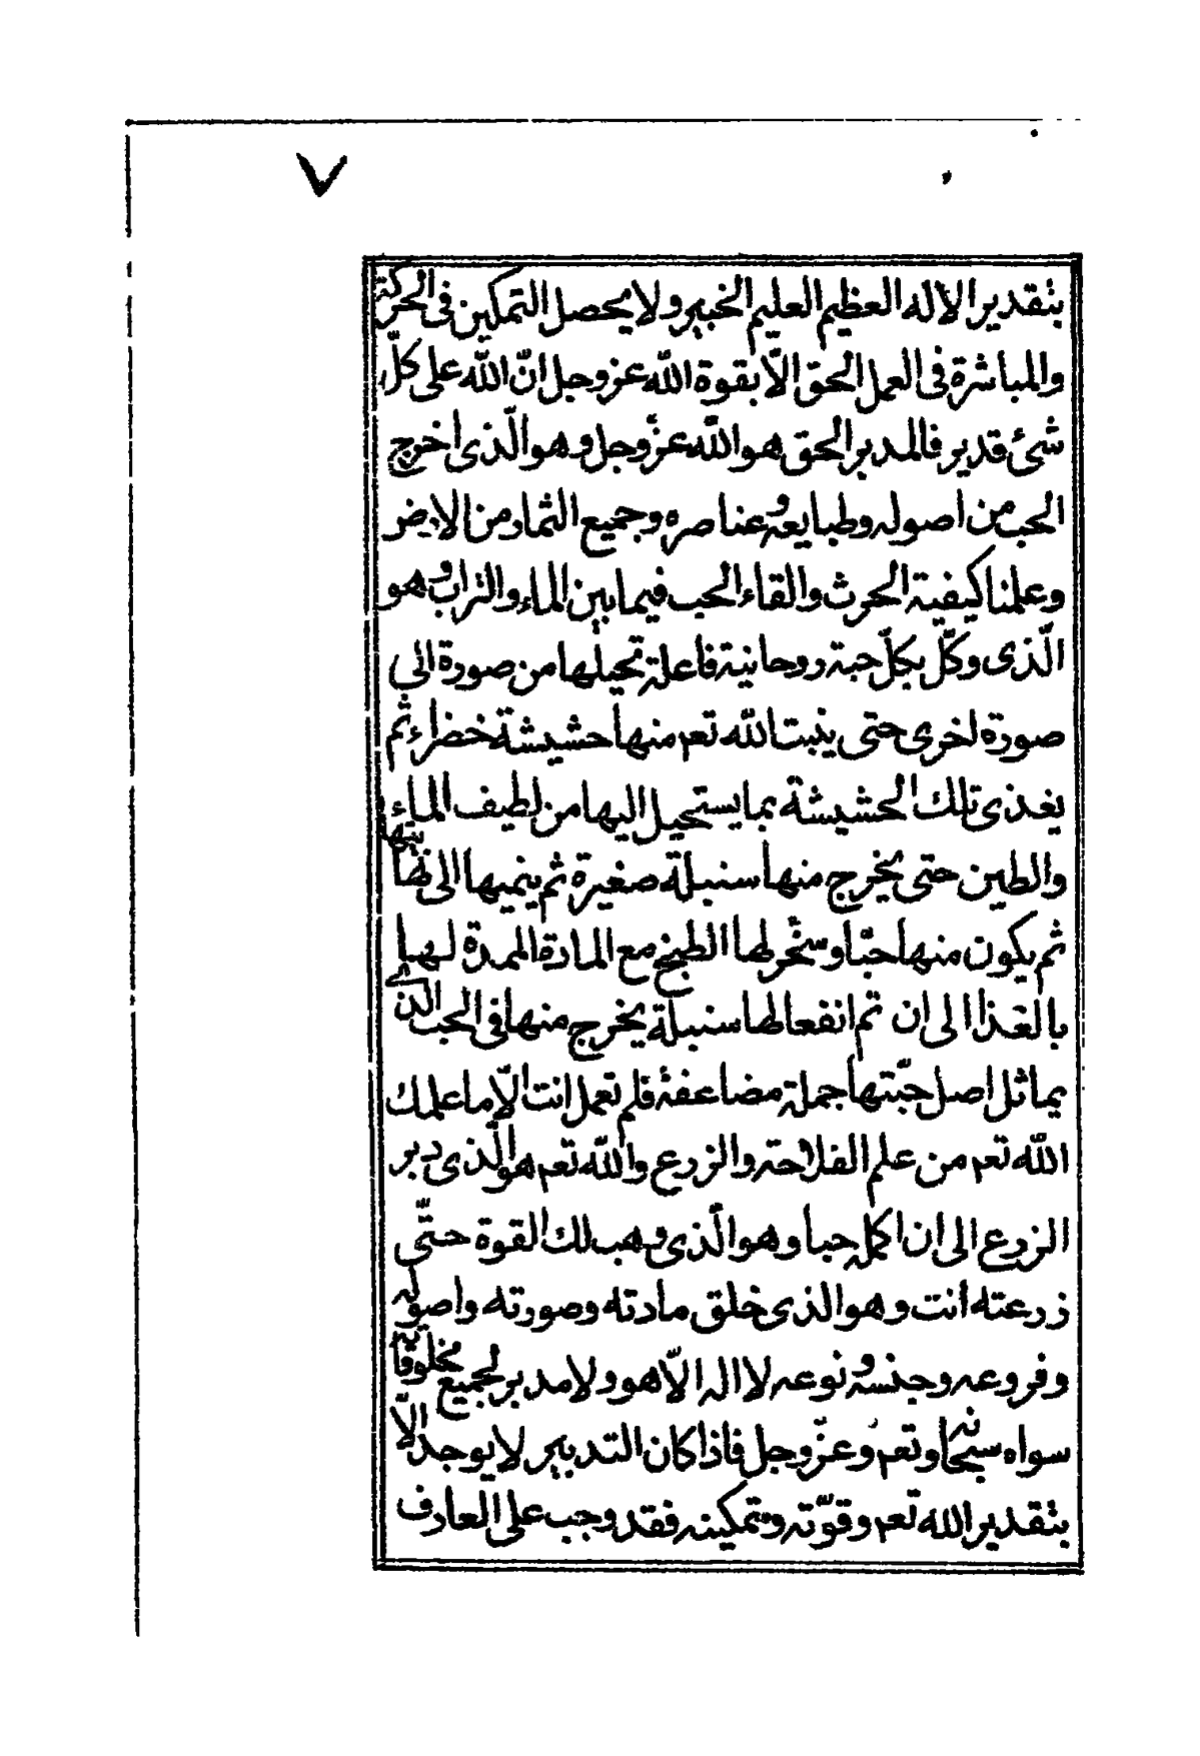 ٧
بتقدير الاله العظيم العليم الخبير ولا يحصل التمكين فى الحركة
والمباشرة فى العمل الحق الّا بقوة الله عز وجل انّ الله على كلّ
شئ قدير فالمدبر الحق هو الله عزّ وجل وهو الّذى اخرج
الحب من اصوله وطبايعه وعناصره وجميع الثمار من الارض
وعلمنا كيفية الحرث والقاء الحب فيما بين الماء والتراب وهو
الّذى وكّل بكلّ حبة روحانية فاعلة تحيلها من صورة الى
صورة اخرى حتى ينبت الله تعم منها حشيشة خضراء ثم
يغذى تلك الحشيشة بما يستحيل اليها من لطيف الماء
والطين حتى يخرج منها سنبلة صغيرة ثم ينميها الى نهايتها
ثم يكون منها حبّا وسخّر لها الطبخ مع المادة الممدة لها
بالغذا الى ان تم انفعالها سنبلة يخرج منها فى الحب الذى
يماثل اصل حبّتها جملة مضاعفة فلم تعمل انت الّا ما علمك
الله تعم من علم الفلاحة والزرع والله تعم هو الّذى دبر
الزرع الى ان اكمله حبا وهو الّذى وهب لك القوة حتّى
زرعته انت وهو الذى خلق مادته وصورته واصوله
وفروعه وجنسه ونوعه لا اله الّا هو ولا مدبر لجميع مخلوقاته
سواه سبحانه وتعم وعزّ وجل فاذا كان التدبير لا يوجد الّا
بتقدير الله تعم وقوّته وتمكينه فقد وجب على العارف